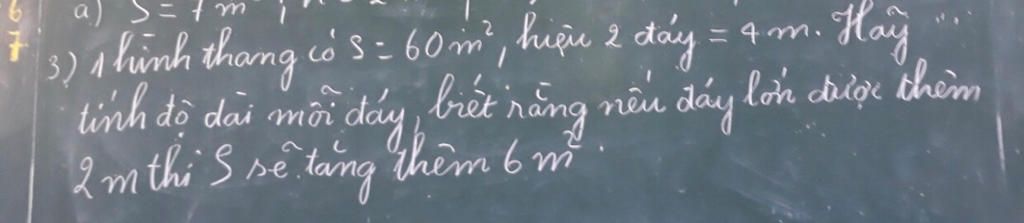 6
a) S = 7 m
7
3) 1 hình thang có S = 60 m², hiệu 2 đáy = 4 m. Hãy
tính độ dài mỗi đáy, biết rằng nếu đáy lớn được thêm
2 m thì S sẽ tăng thêm 6 m²